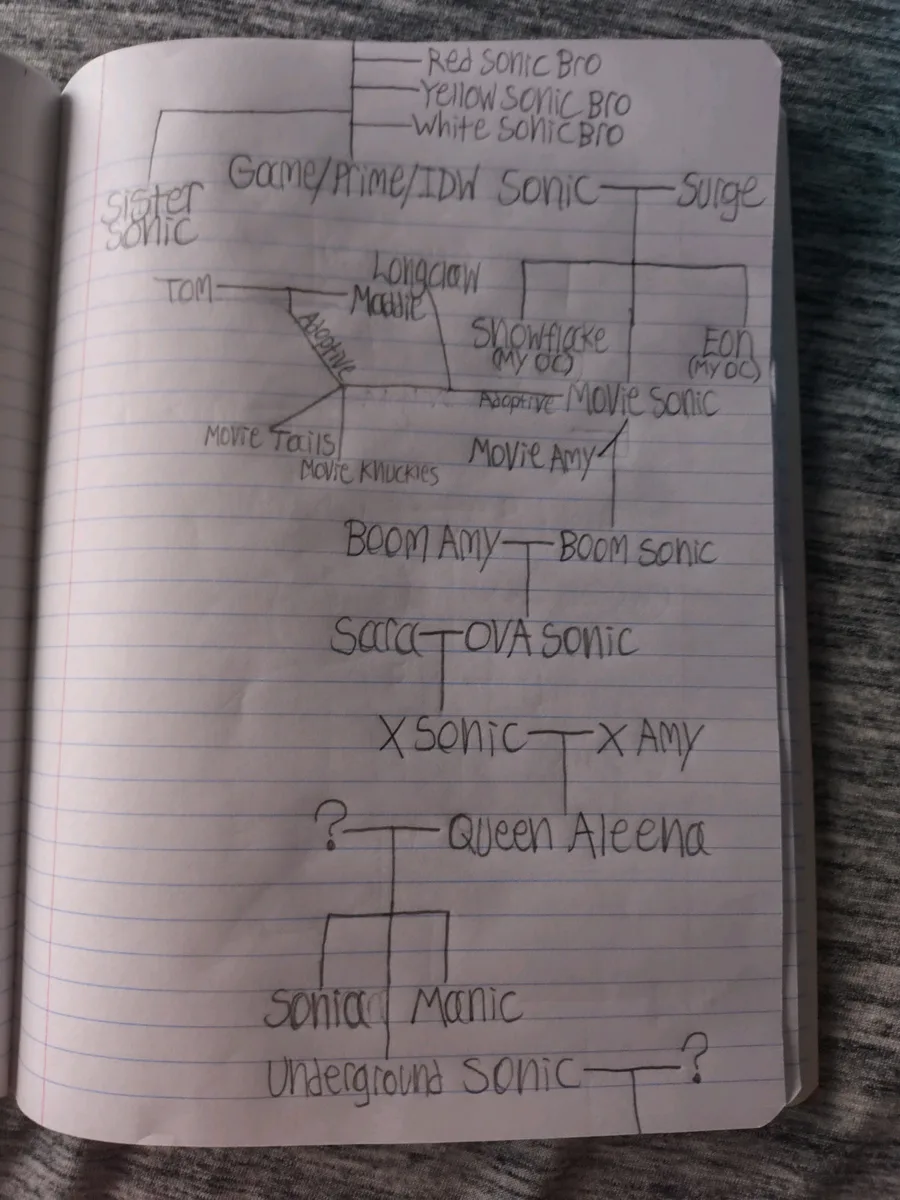 Red Sonic Bro
Yellow Sonic Bro
White Sonic Bro
Game/Prime/IDW Sonic
Surge
Sister
Sonic
Longclaw
Tom
Maddie
Adoptive
Snowflake
(My OC)
Eon
(My OC)
Adoptive
Movie Sonic
Movie Tails
Movie Knuckles
Movie Amy
Boom Amy
Boom Sonic
Sara
OVA Sonic
X Sonic
X Amy
?
Queen Aleena
Sonia
Manic
Underground Sonic
?